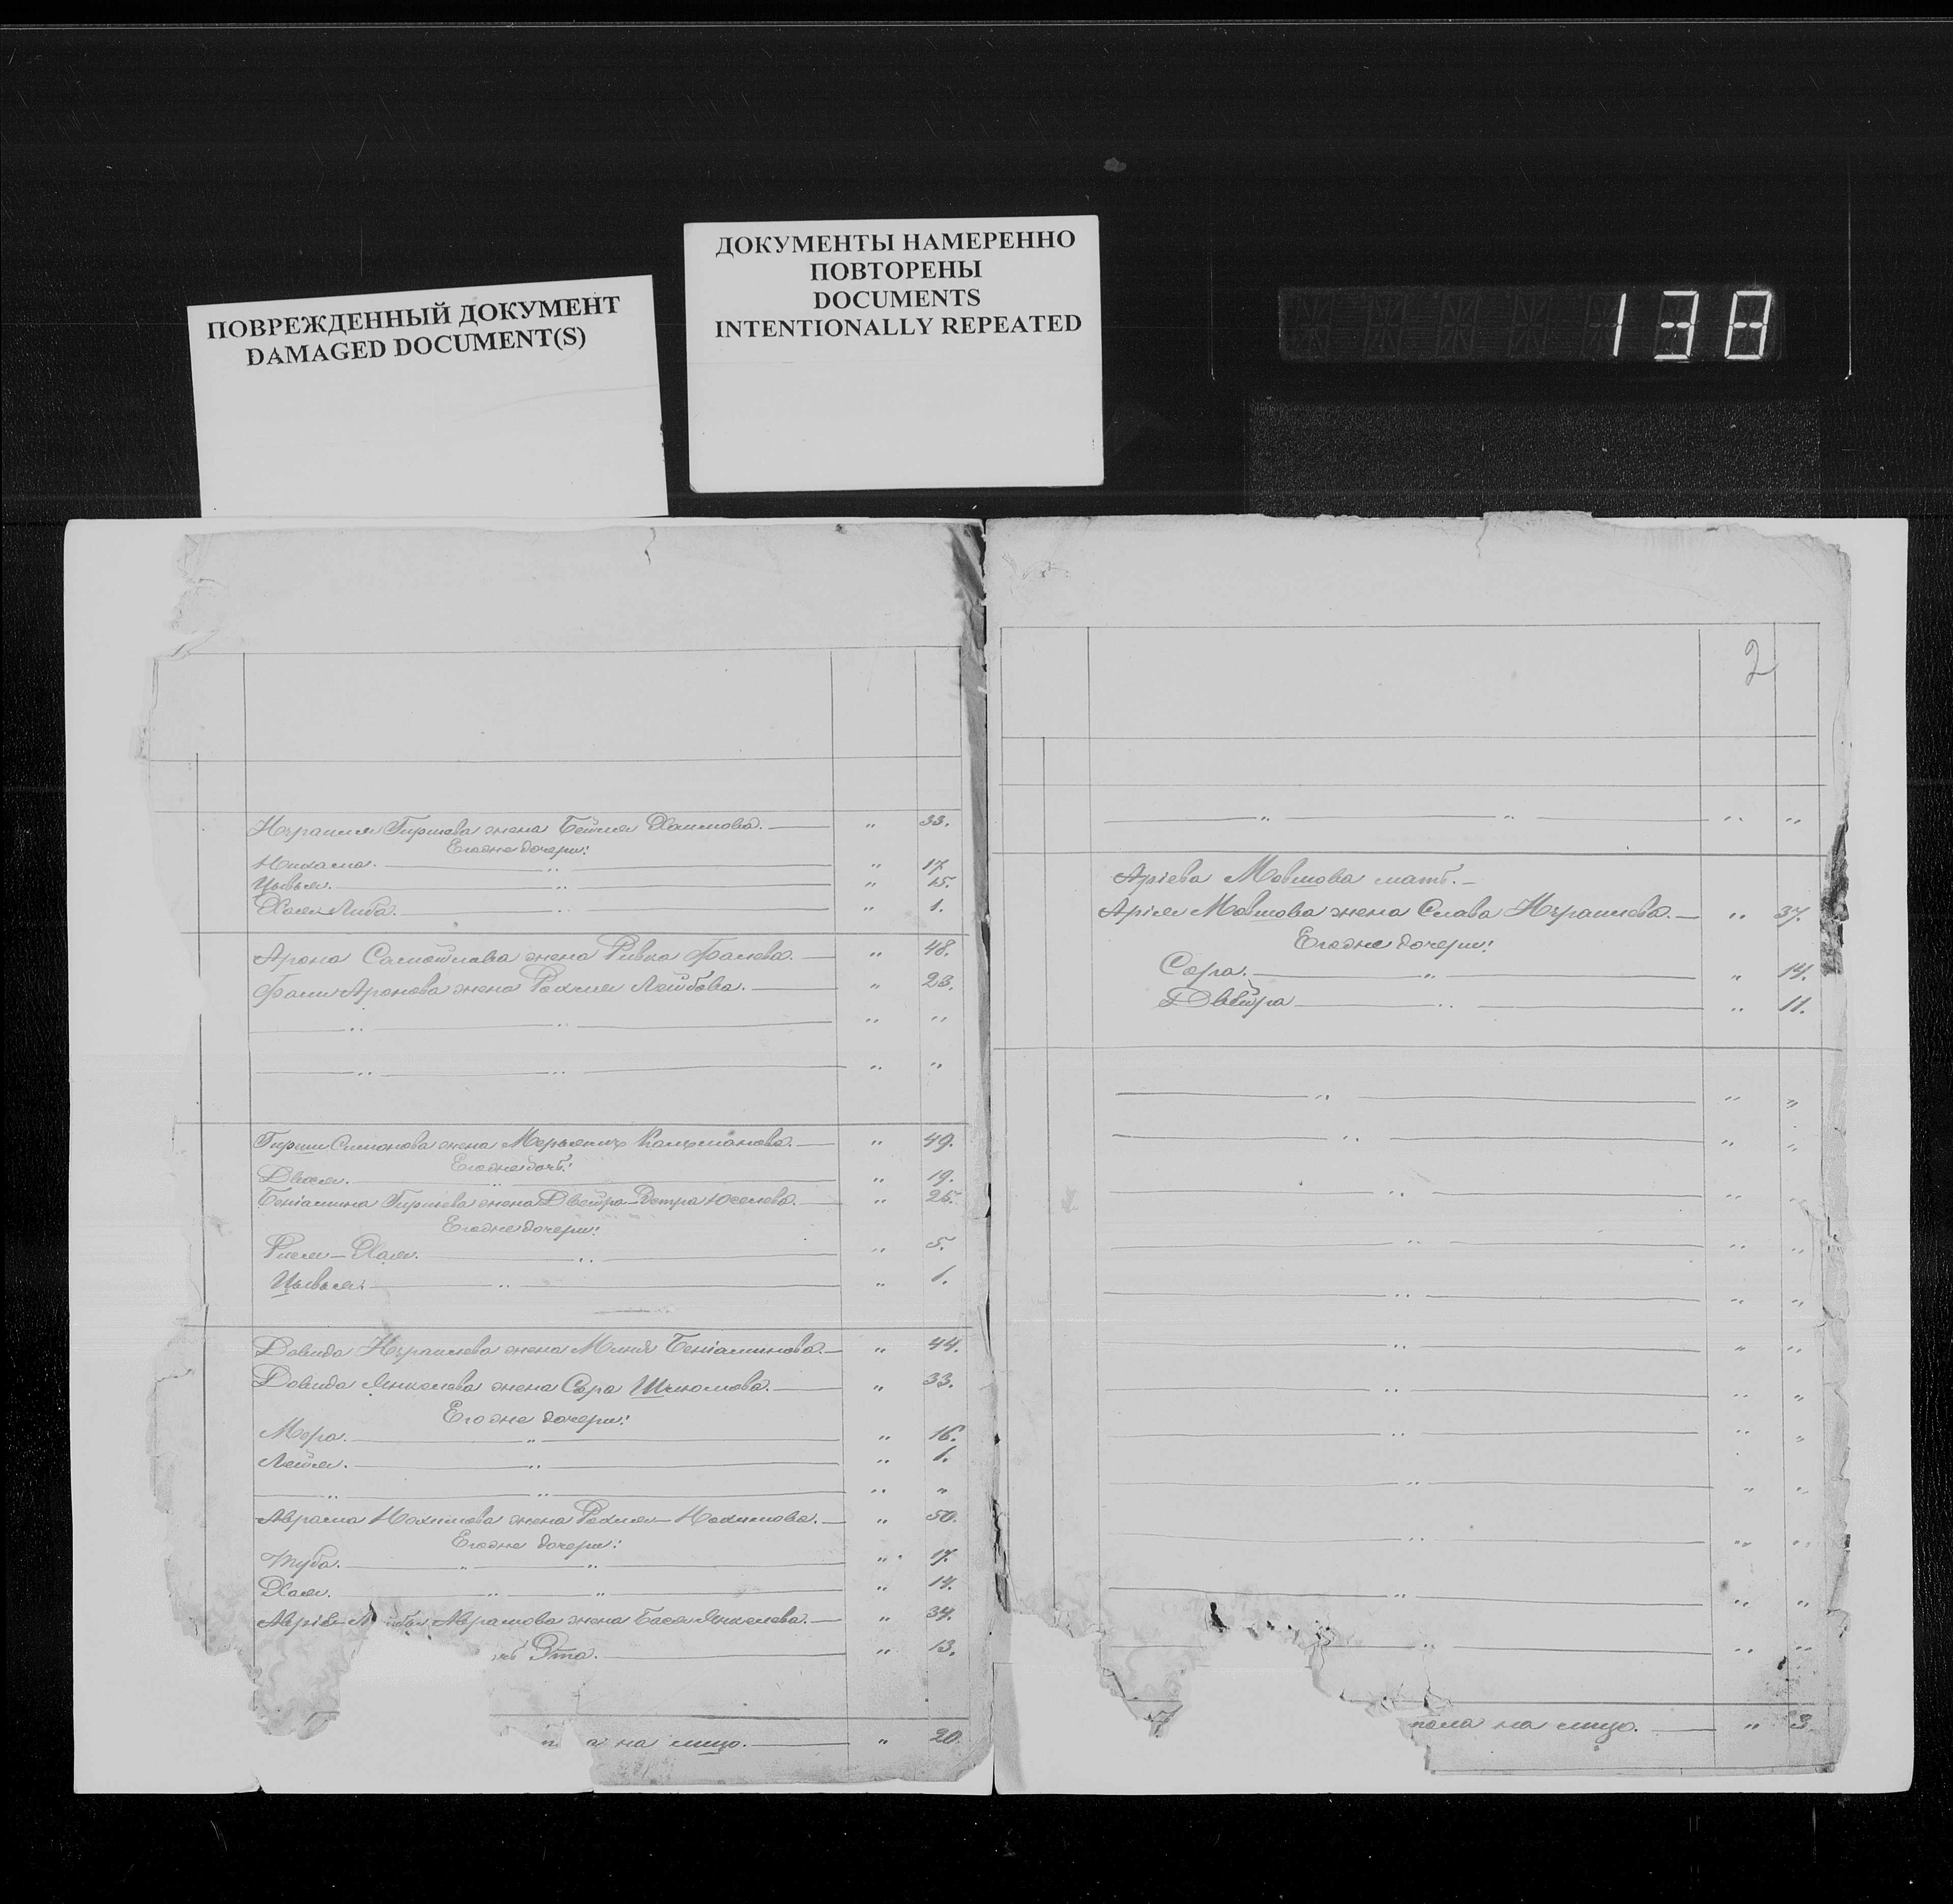 ПОВРЕЖДЕННЫЙ ДОКУМЕНТ
DAMAGED DOCUMENT(S)
ДОКУМЕНТЫ НАМЕРЕННО
ПОВТОРЕНЫ
DOCUMENTS
INTENTIONALLY REPEATED
138
Израиля Гиршева жена Бейля Хаимова. " 33.
Его же дочери:
Нихама. " " 17.
Цывья. " " 15.
Хая Либа. " " 1.
Арона Самойлова жена Ривка Фалева. " 48.
Аронова жена Рахля Лейбова. " 23.
" " " "
" " " "
Гирши Симонова жена Кальманова. " 49.
Его же дочь:
Двося. " " 19.
Беніамина Гиршева жена Двейра Юселева. " 25.
Его же дочери:
Рися-Хая. " " 5.
Цывья. " " 1.
Довида Израилева жена Беніаминова. " 44.
Довида Янкелева жена Сора Шлиомова. " 33.
Его же дочери:
Мера. " " 16.
Лейя. " " 1.
" " " "
Аврама Нохимова жена Рахля Нохимова. " 50.
Его же дочери:
Туба. " " " 17.
Хая. " " " 14.
Аврамова жена Бася Янкелева. " 34.
Эта. " 13.
на лицо. " 20
2
" " " "
Аріева Мовшова мать.
Арія Мовшова жена Слава Израилева. " 37.
Его же дочери:
Сора. " " 14.
Двейра " " 11.
" " "
" " "
" " "
" " "
" " "
" " "
" " "
" " "
" " "
" " "
" " "
" " "
пола на лицо. " 3